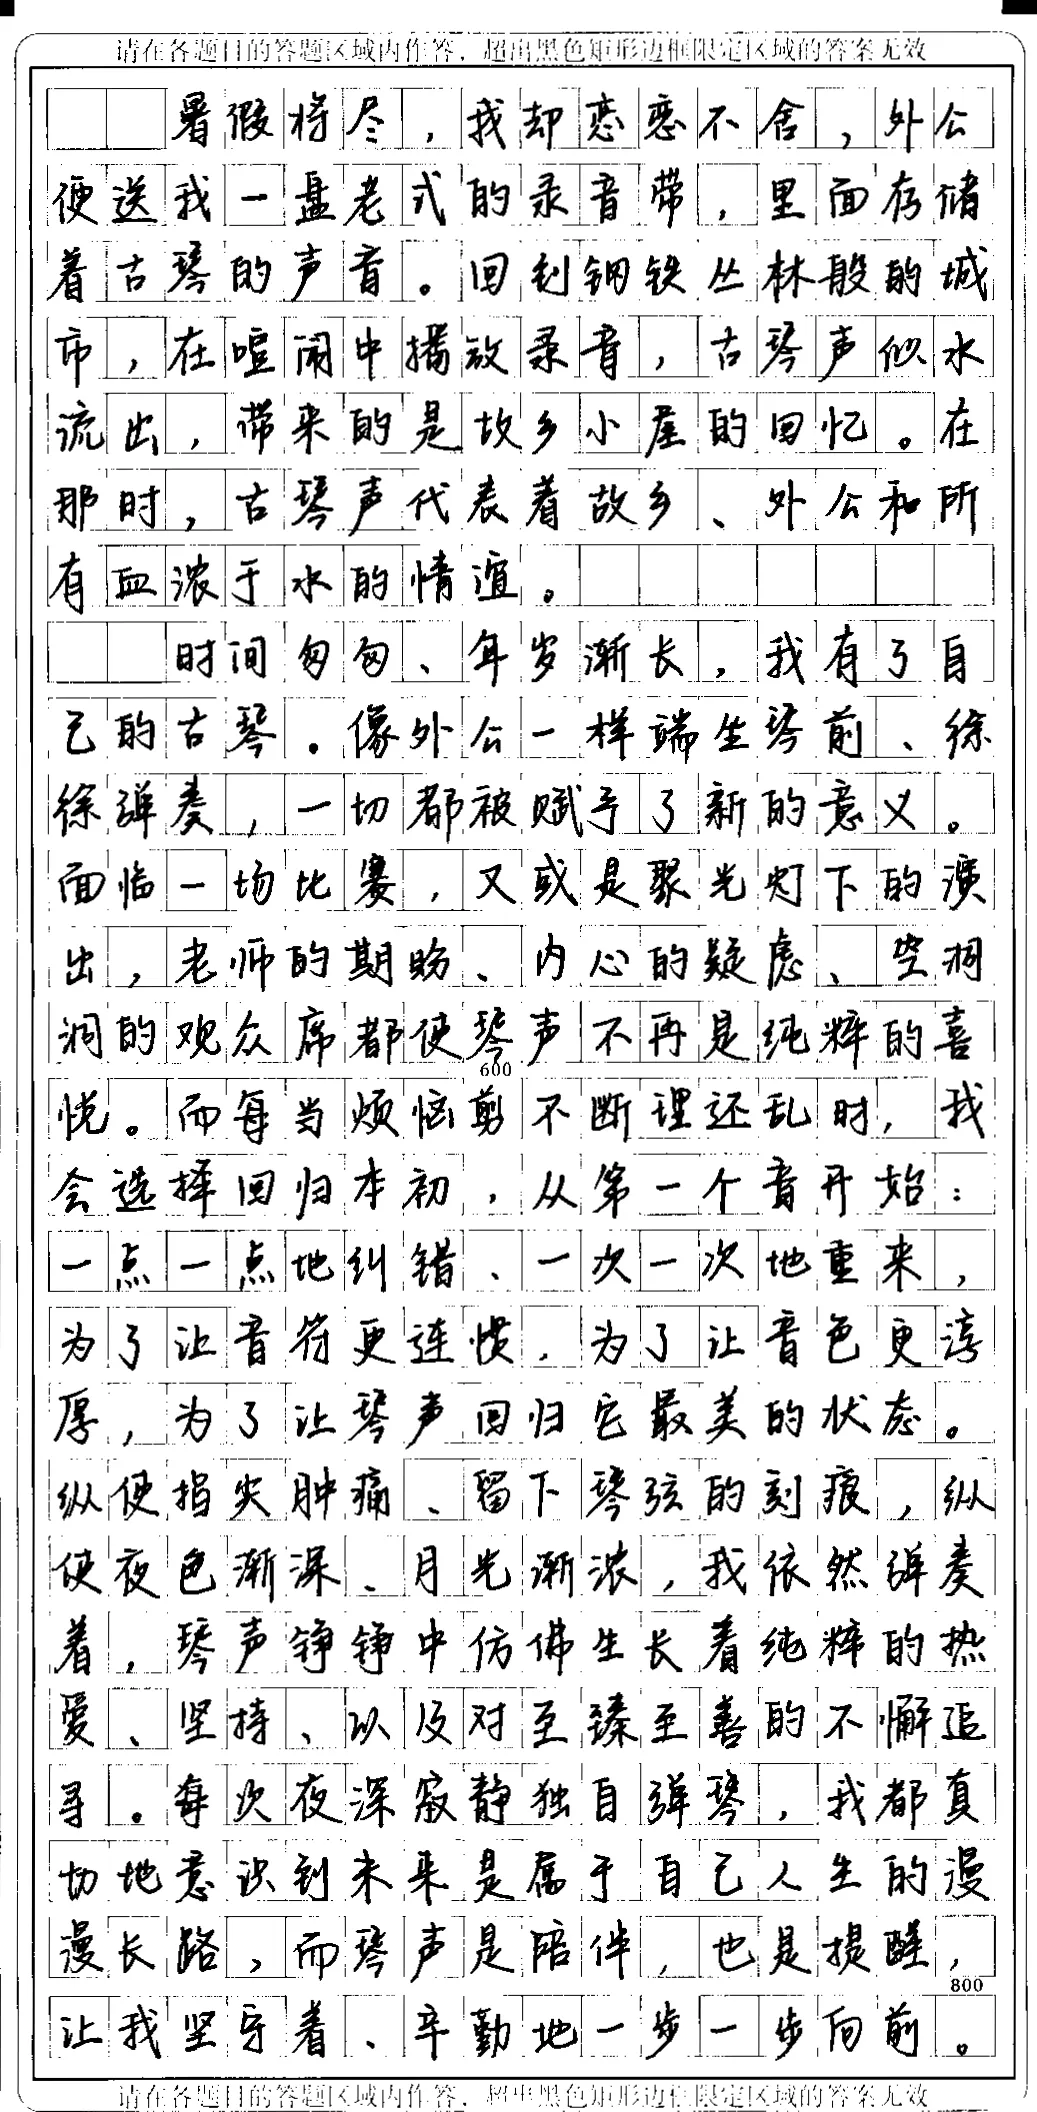 请在各题目的答题区域内作答，超出黑色矩形边框限定区域的答案无效
暑假将尽，我却恋恋不舍，外公
便送我一盘老式的录音带，里面存储
着古琴的声音。回到钢铁丛林般的城
市，在喧闹中播放录音，古琴声似水
流出，带来的是故乡小屋的回忆。在
那时，古琴声代表着故乡、外公和所
有血浓于水的情谊。
时间匆匆、年岁渐长，我有了自
己的古琴。像外公一样端坐琴前、徐
徐弹奏，一切都被赋予了新的意义。
面临一场比赛，又或是聚光灯下的演
出，老师的期盼、内心的疑虑、空洞
洞的观众席都使琴声不再是纯粹的喜
600
悦。而每当烦恼剪不断理还乱时，我
会选择回归本初，从第一个音开始：
一点一点地纠错、一次一次地重来，
为了让音符更连惯，为了让音色更淳
厚，为了让琴声回归它最美的状态。
纵使指尖肿痛、留下琴弦的刻痕，纵
使夜色渐深、月光渐浓，我依然弹奏
着，琴声铮铮中仿佛生长着纯粹的热
爱、坚持、以及对至臻至善的不懈追
寻。每次夜深寂静独自弹琴，我都真
切地意识到未来是属于自己人生的漫
漫长路，而琴声是陪伴，也是提醒，
800
让我坚守着、辛勤地一步一步向前。
请在各题目的答题区域内作答，超出黑色矩形边框限定区域的答案无效